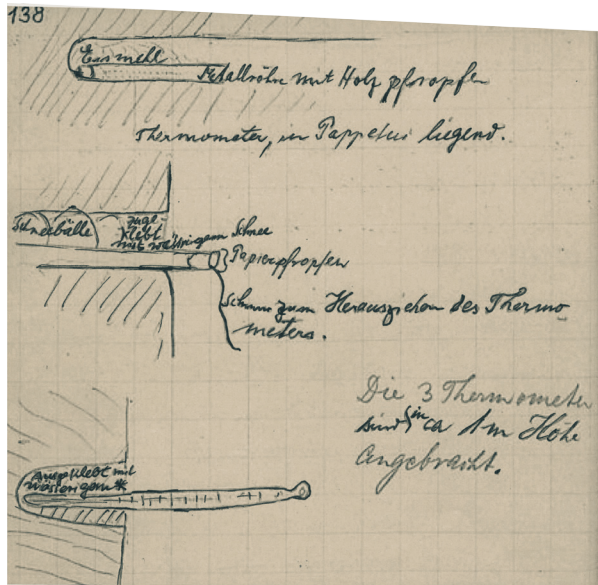 138
Eismehl
Metallröhre mit Holz pfropfen
Thermometer, in Pappetui liegend.
Schneebälle
zuge-
klebt
mit wässrigem Schnee
Papierpfropfen
Schnur zum Herausziehen des Thermo
meters.
Die 3 Thermometer
sind in ca 1m Höhe
angebracht.
ausgeklebt mit
wässrigem *